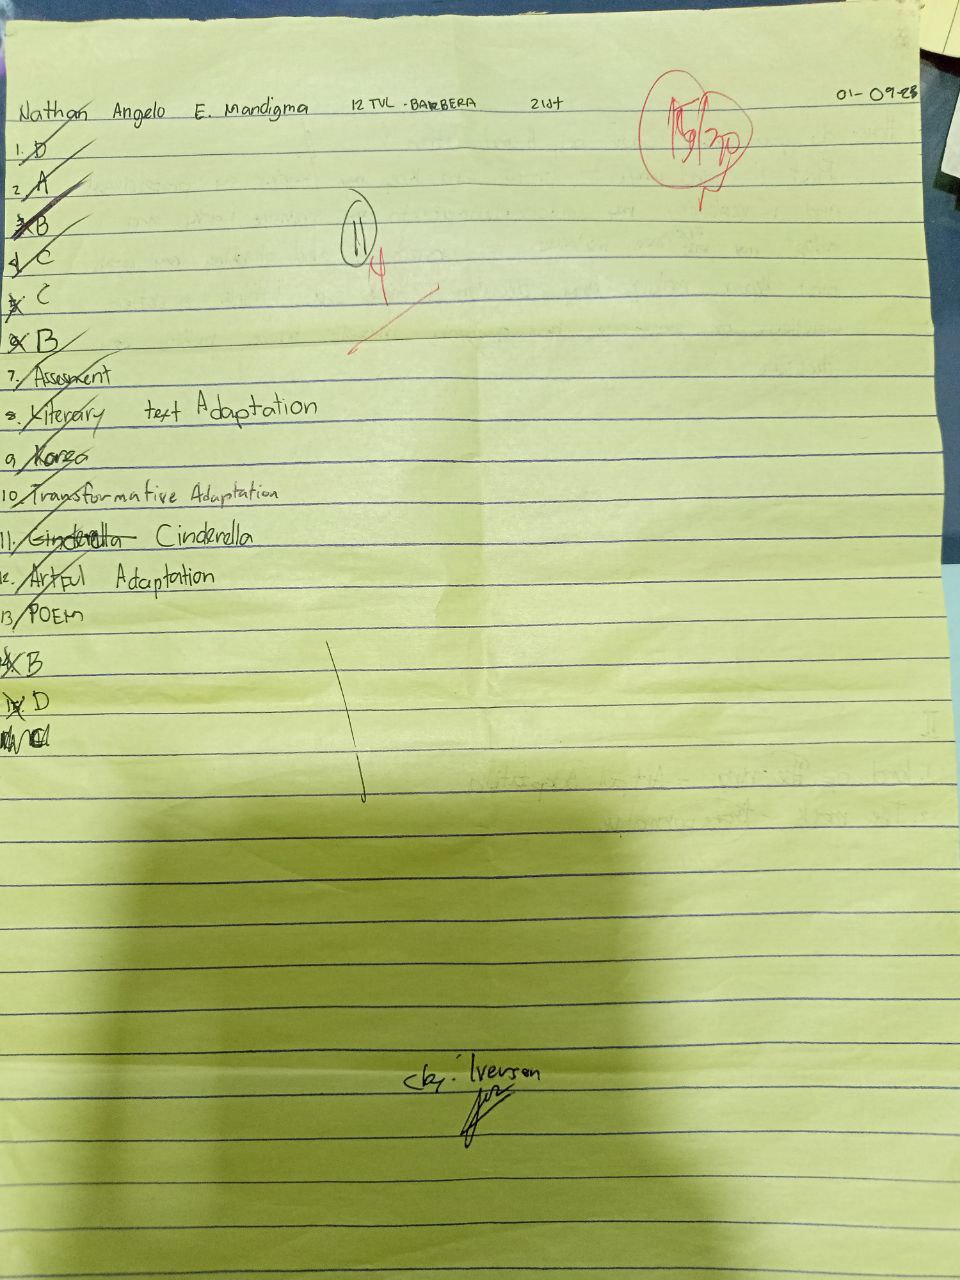 Nathan Angelo E. Mandigma 12 TVL - BARBERA 21st 01-09-25
1. D
2. A
3. B
4. C
5. C
6. B
11
4
7. Assesment
8. Literary text Adaptation
9. Korea
10. Transformative Adaptation
11. Cinderella Cinderella
12. Artful Adaptation
13. POEM
14. B
15. D
cby: Iverson